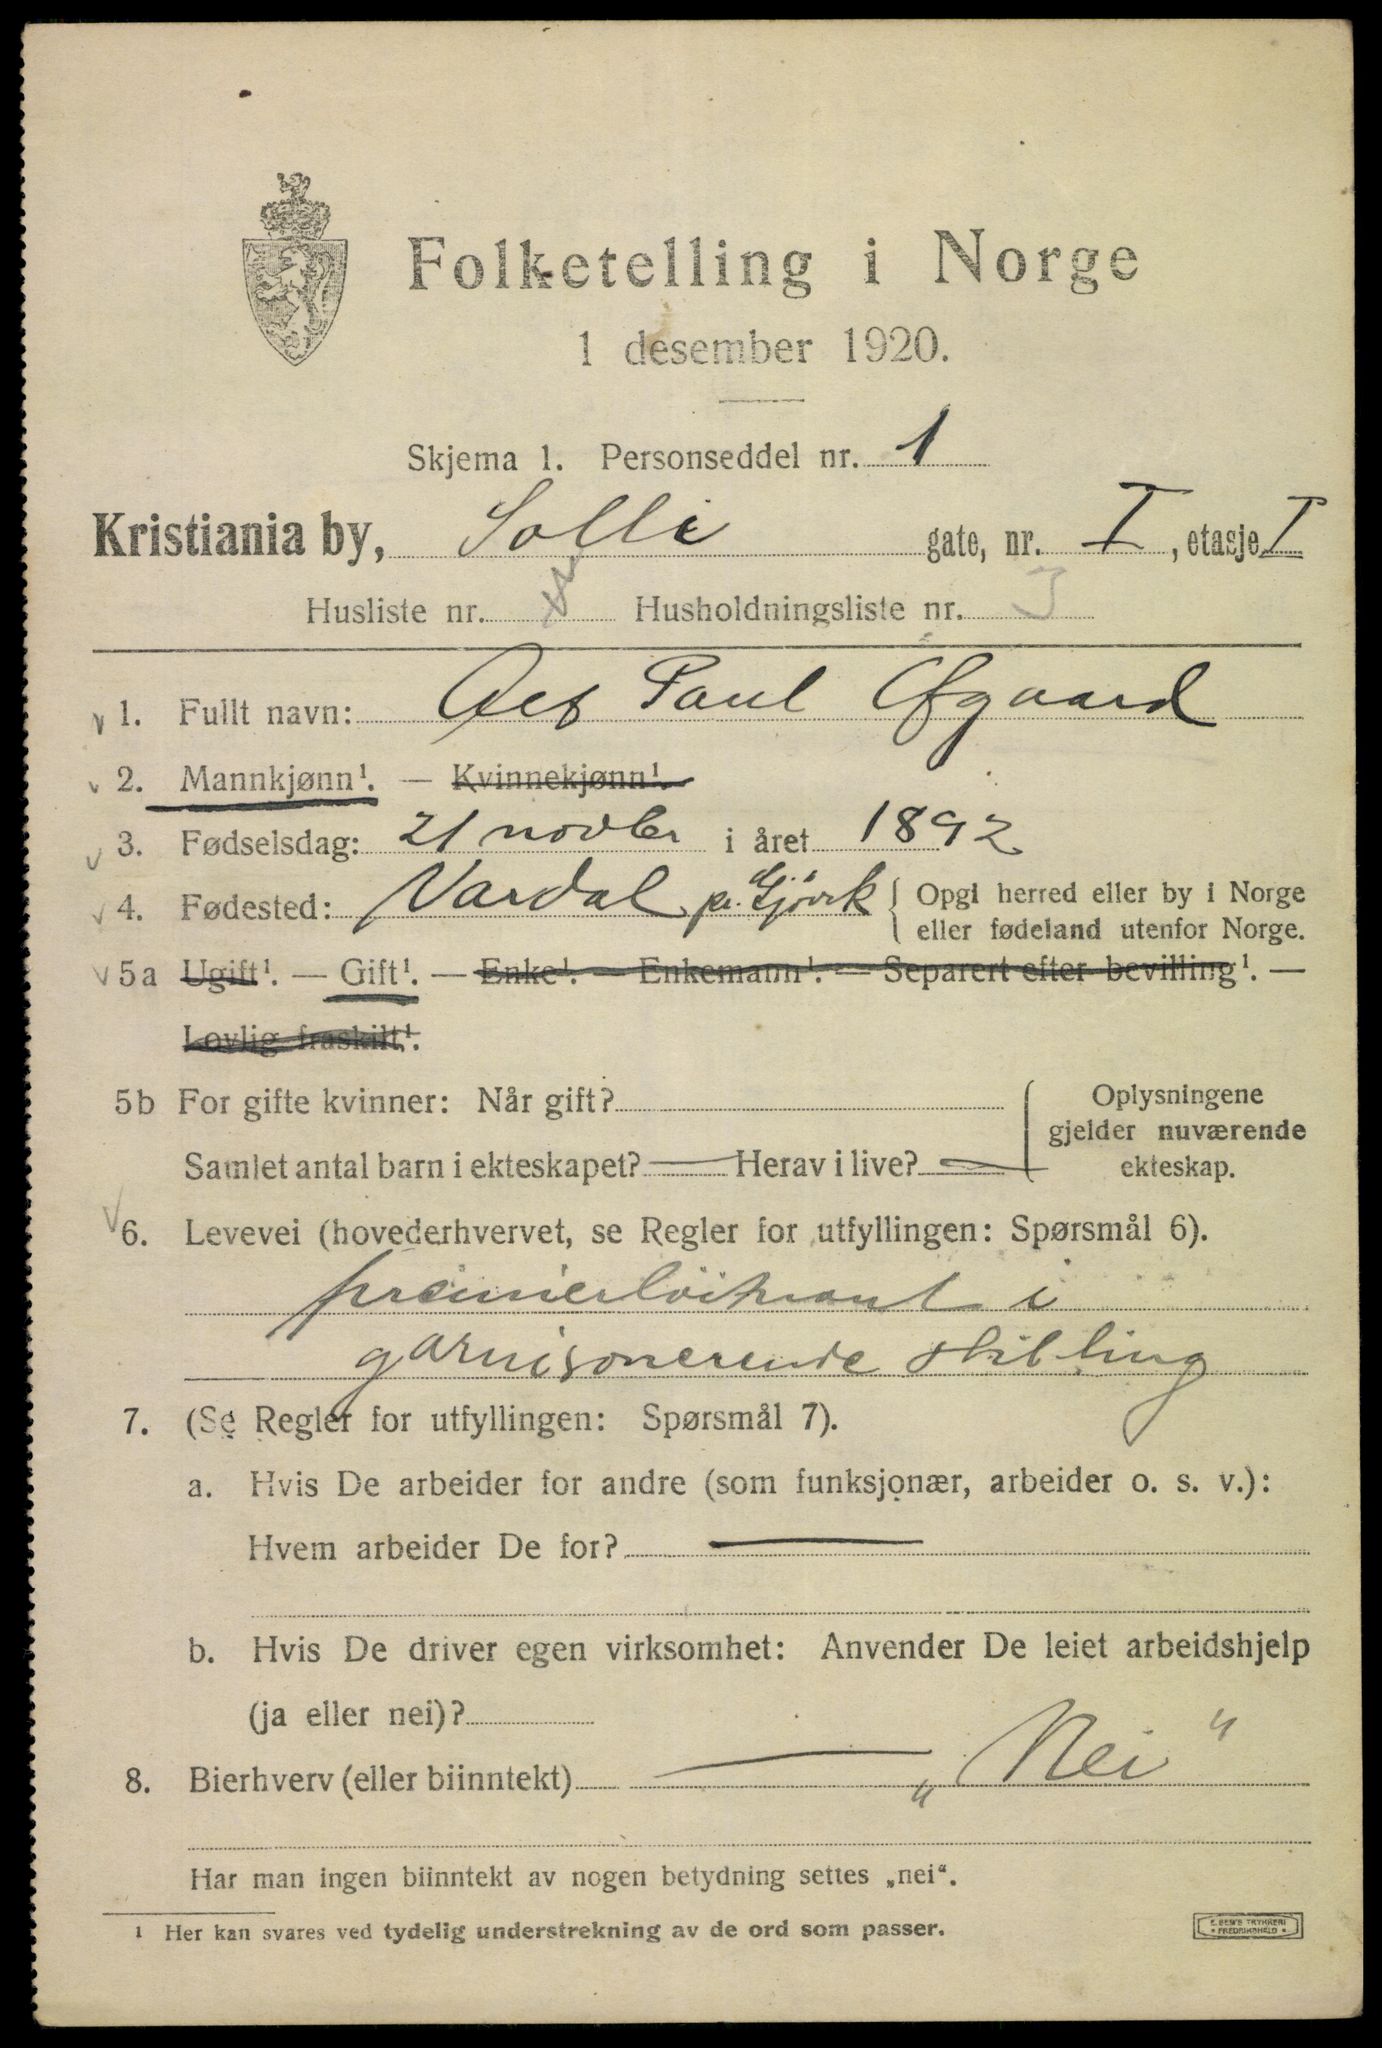 Folketelling i Norge
1 desember 1920.
Skjema 1. Personseddel nr. 1
Kristiania by, Solli gate, nr. I, etasje I
Husliste nr. Husholdningsliste nr. 3
1. Fullt navn: Paul Øfgaard
2. Mannkjønn¹. — Kvinnekjønn¹.
3. Fødselsdag: 21 novbr i året 1892
4. Fødested: Vardal pr. Gjövik { Opgi herred eller by i Norge
eller fødeland utenfor Norge.
5a Ugift¹. — Gift¹. — Enke¹. — Enkemann¹. — Separert efter bevilling¹. —
Lovlig fraskilt¹.
5b For gifte kvinner: Når gift?
Samlet antal barn i ekteskapet? — Herav i live? —
Oplysningene
gjelder nuværende
ekteskap.
6. Levevei (hovederhvervet, se Regler for utfyllingen: Spørsmål 6).
premierlöitnant i
garnisonerende stilling
7. (Se Regler for utfyllingen: Spørsmål 7).
a. Hvis De arbeider for andre (som funksjonær, arbeider o. s. v.):
Hvem arbeider De for? —
b. Hvis De driver egen virksomhet: Anvender De leiet arbeidshjelp
(ja eller nei)?
8. Bierhverv (eller biinntekt) — „Nei“
Har man ingen biinntekt av nogen betydning settes „nei“.
1 Her kan svares ved tydelig understrekning av de ord som passer.
E. SEM'S TRYKKERI
FREDRIKSHALD